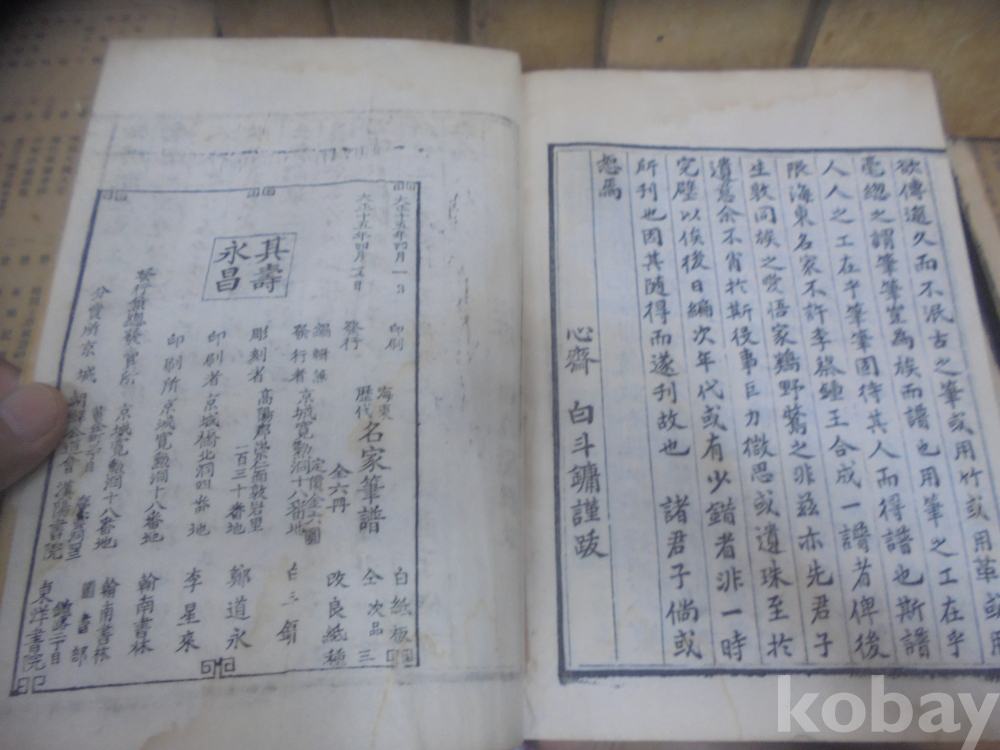 欲傳遠久而不泯古之筆或用竹或用革或用
毫總之謂筆筆豈為族而譜也用筆之工在乎
人人之工在乎筆筆固待其人而得譜也斯譜
限海東名家不許李蔡鍾王合成一譜者俾後
生敦同族之愛悟家鷄野鶩之非茲亦先君子
遺意余不肖於斯役事巨力微思或遺珠至於
完璧以俟後日編次年代或有少錯者非一時
所刊也因其隨得而遂刊故也 諸君子倘或
恕焉
心齋 白斗鏞謹跋
大正十五年四月一日 印刷
大正十五年四月 日 發行
其壽
永昌
海東
歷代 名家筆譜
全六冊
白紙板
仝次品三
改良紙種
編輯兼
發行者 京城寬勳洞十八番地 白斗鏞
彫刻者 高陽郡崇仁面敦岩里
一百三十番地 鄭道永
印刷者 京城橋北洞四番地 李星來
印刷所 京城寬勳洞十八番地 翰南書林
京城寬勳洞十八番地 翰南書林
分賣所 京城
圖書部
漢陽書院
東洋書院
kobay